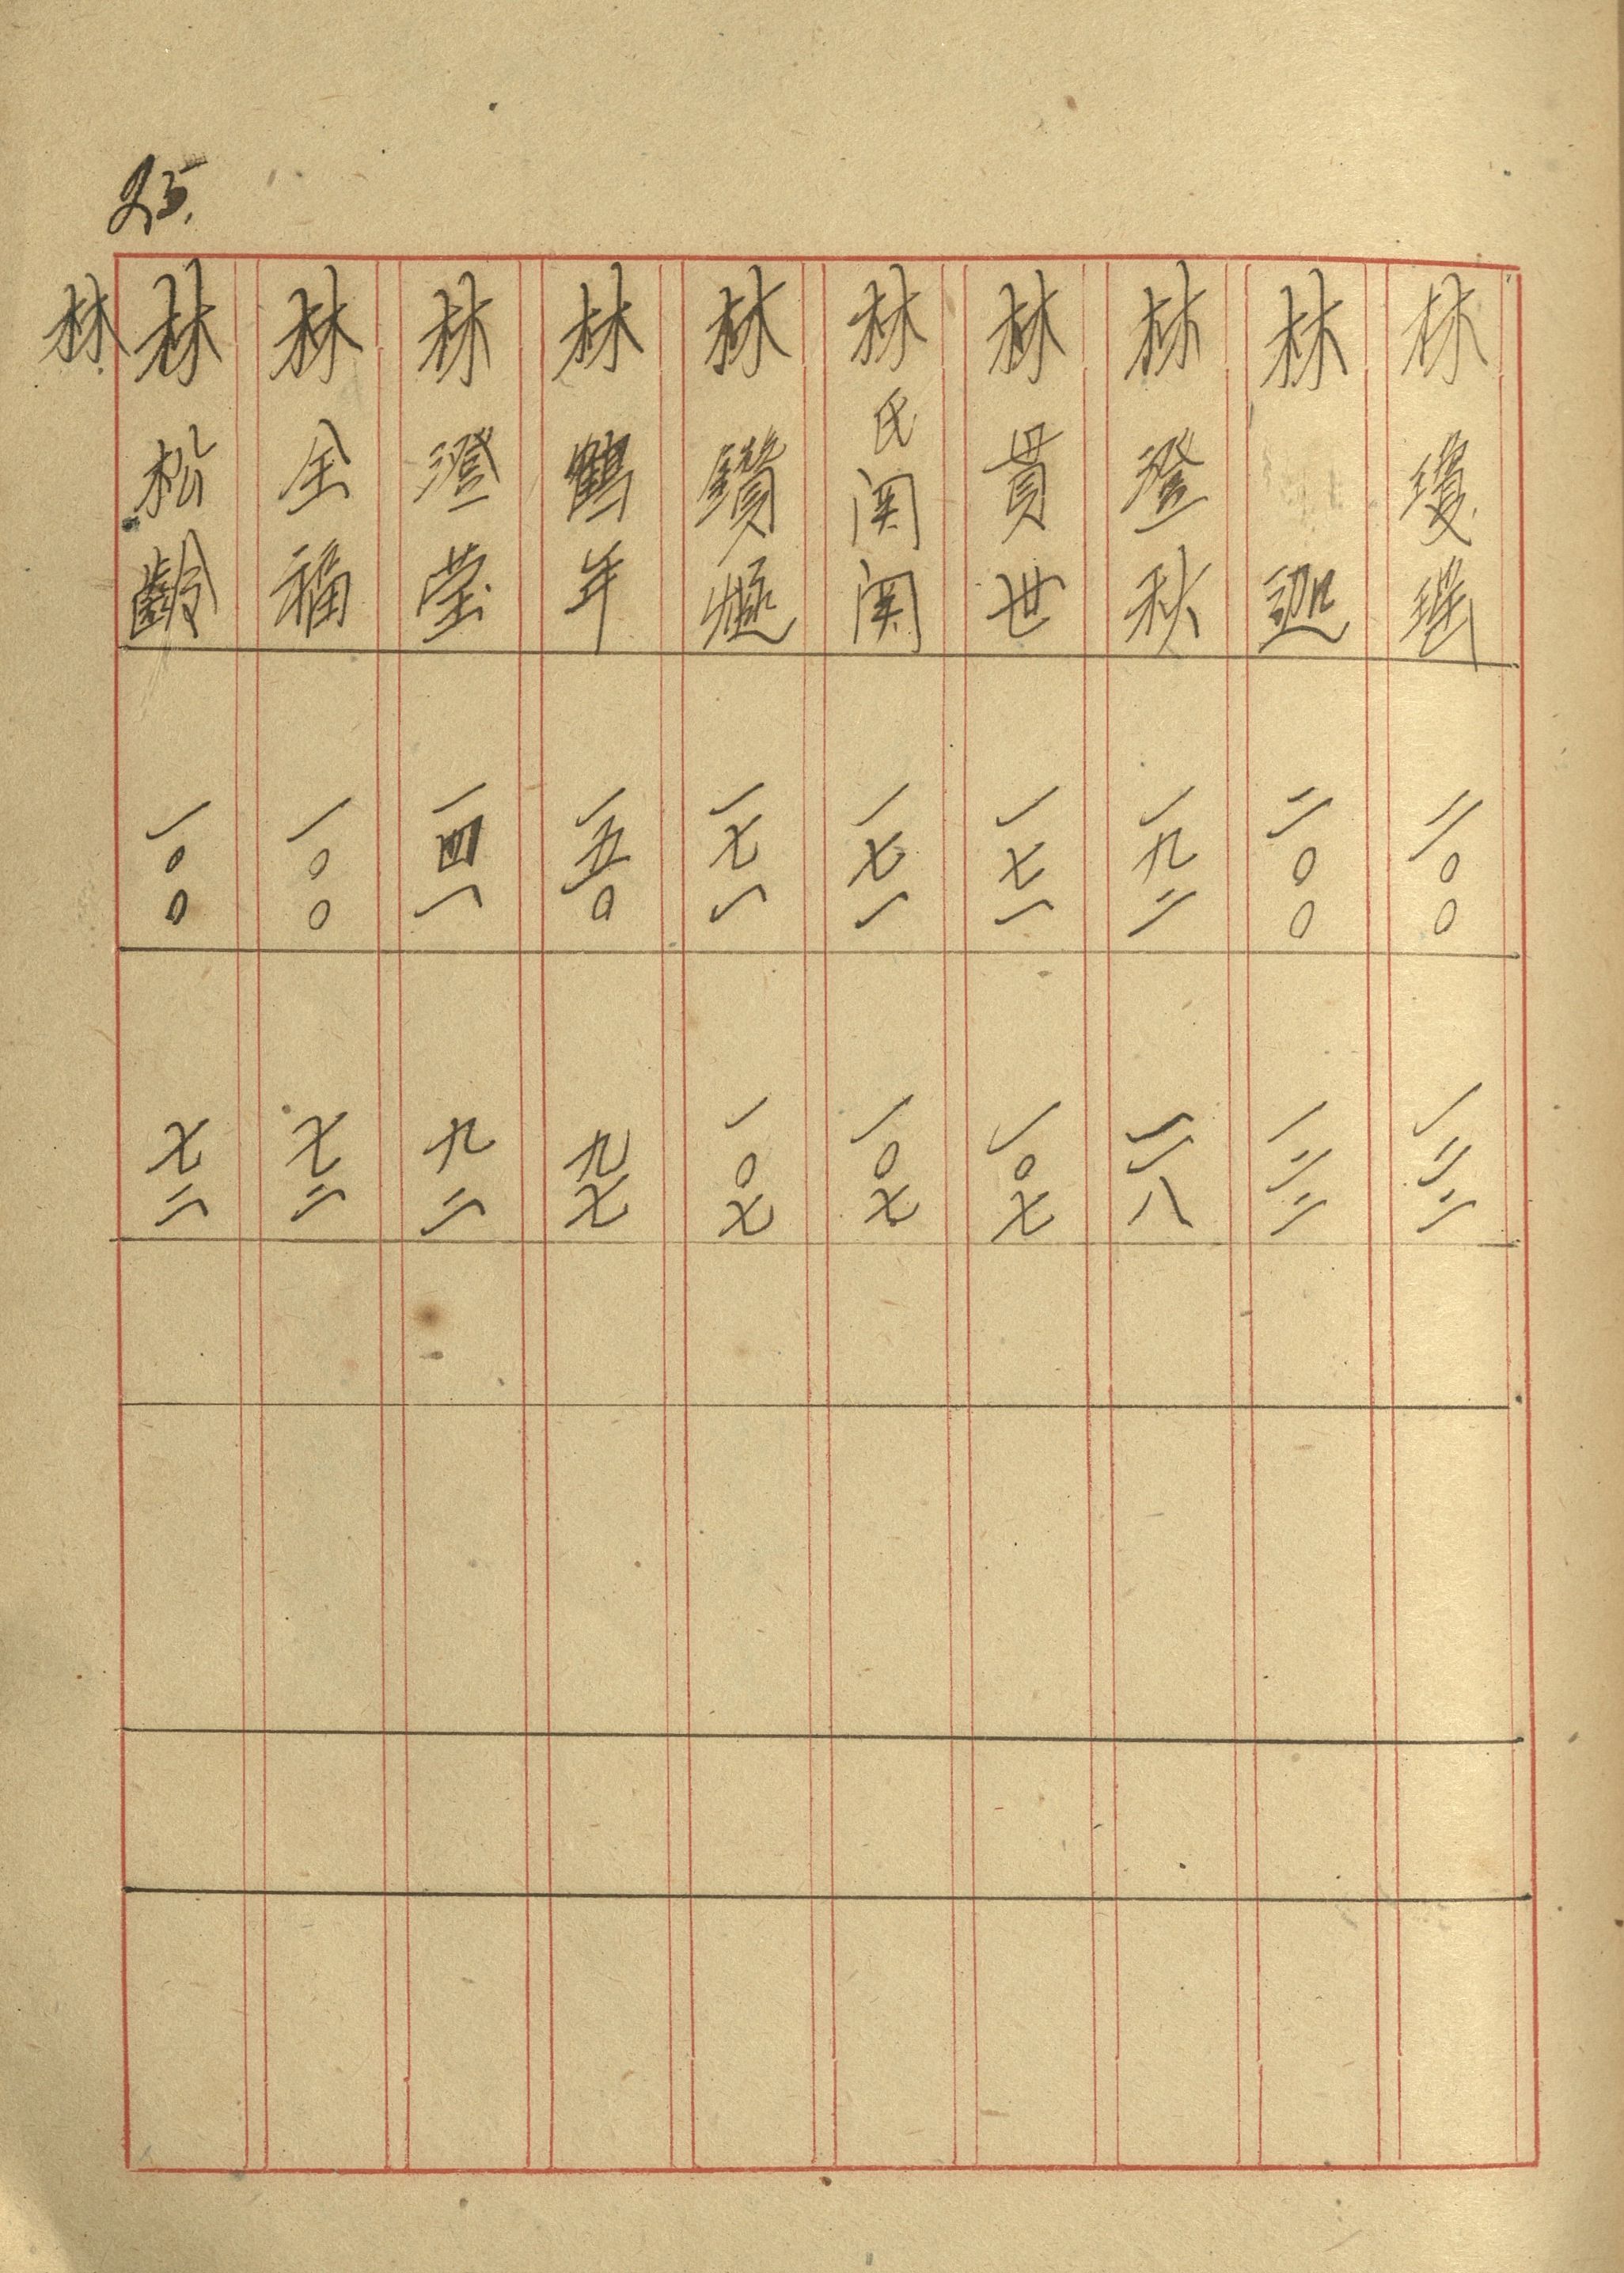 25.
林瓊瑤
二〇〇
一二二
林迦
二〇〇
一二二
林澄秋
一九二
一一八
林貫世
一七一
一〇七
林氏関関
一七一
一〇七
林鑽
一七一
一〇七
林鶴年
一五〇
九七
林澄瑩
一四一
九二
林全福
一〇〇
七二
林松齡
一〇〇
七二
林